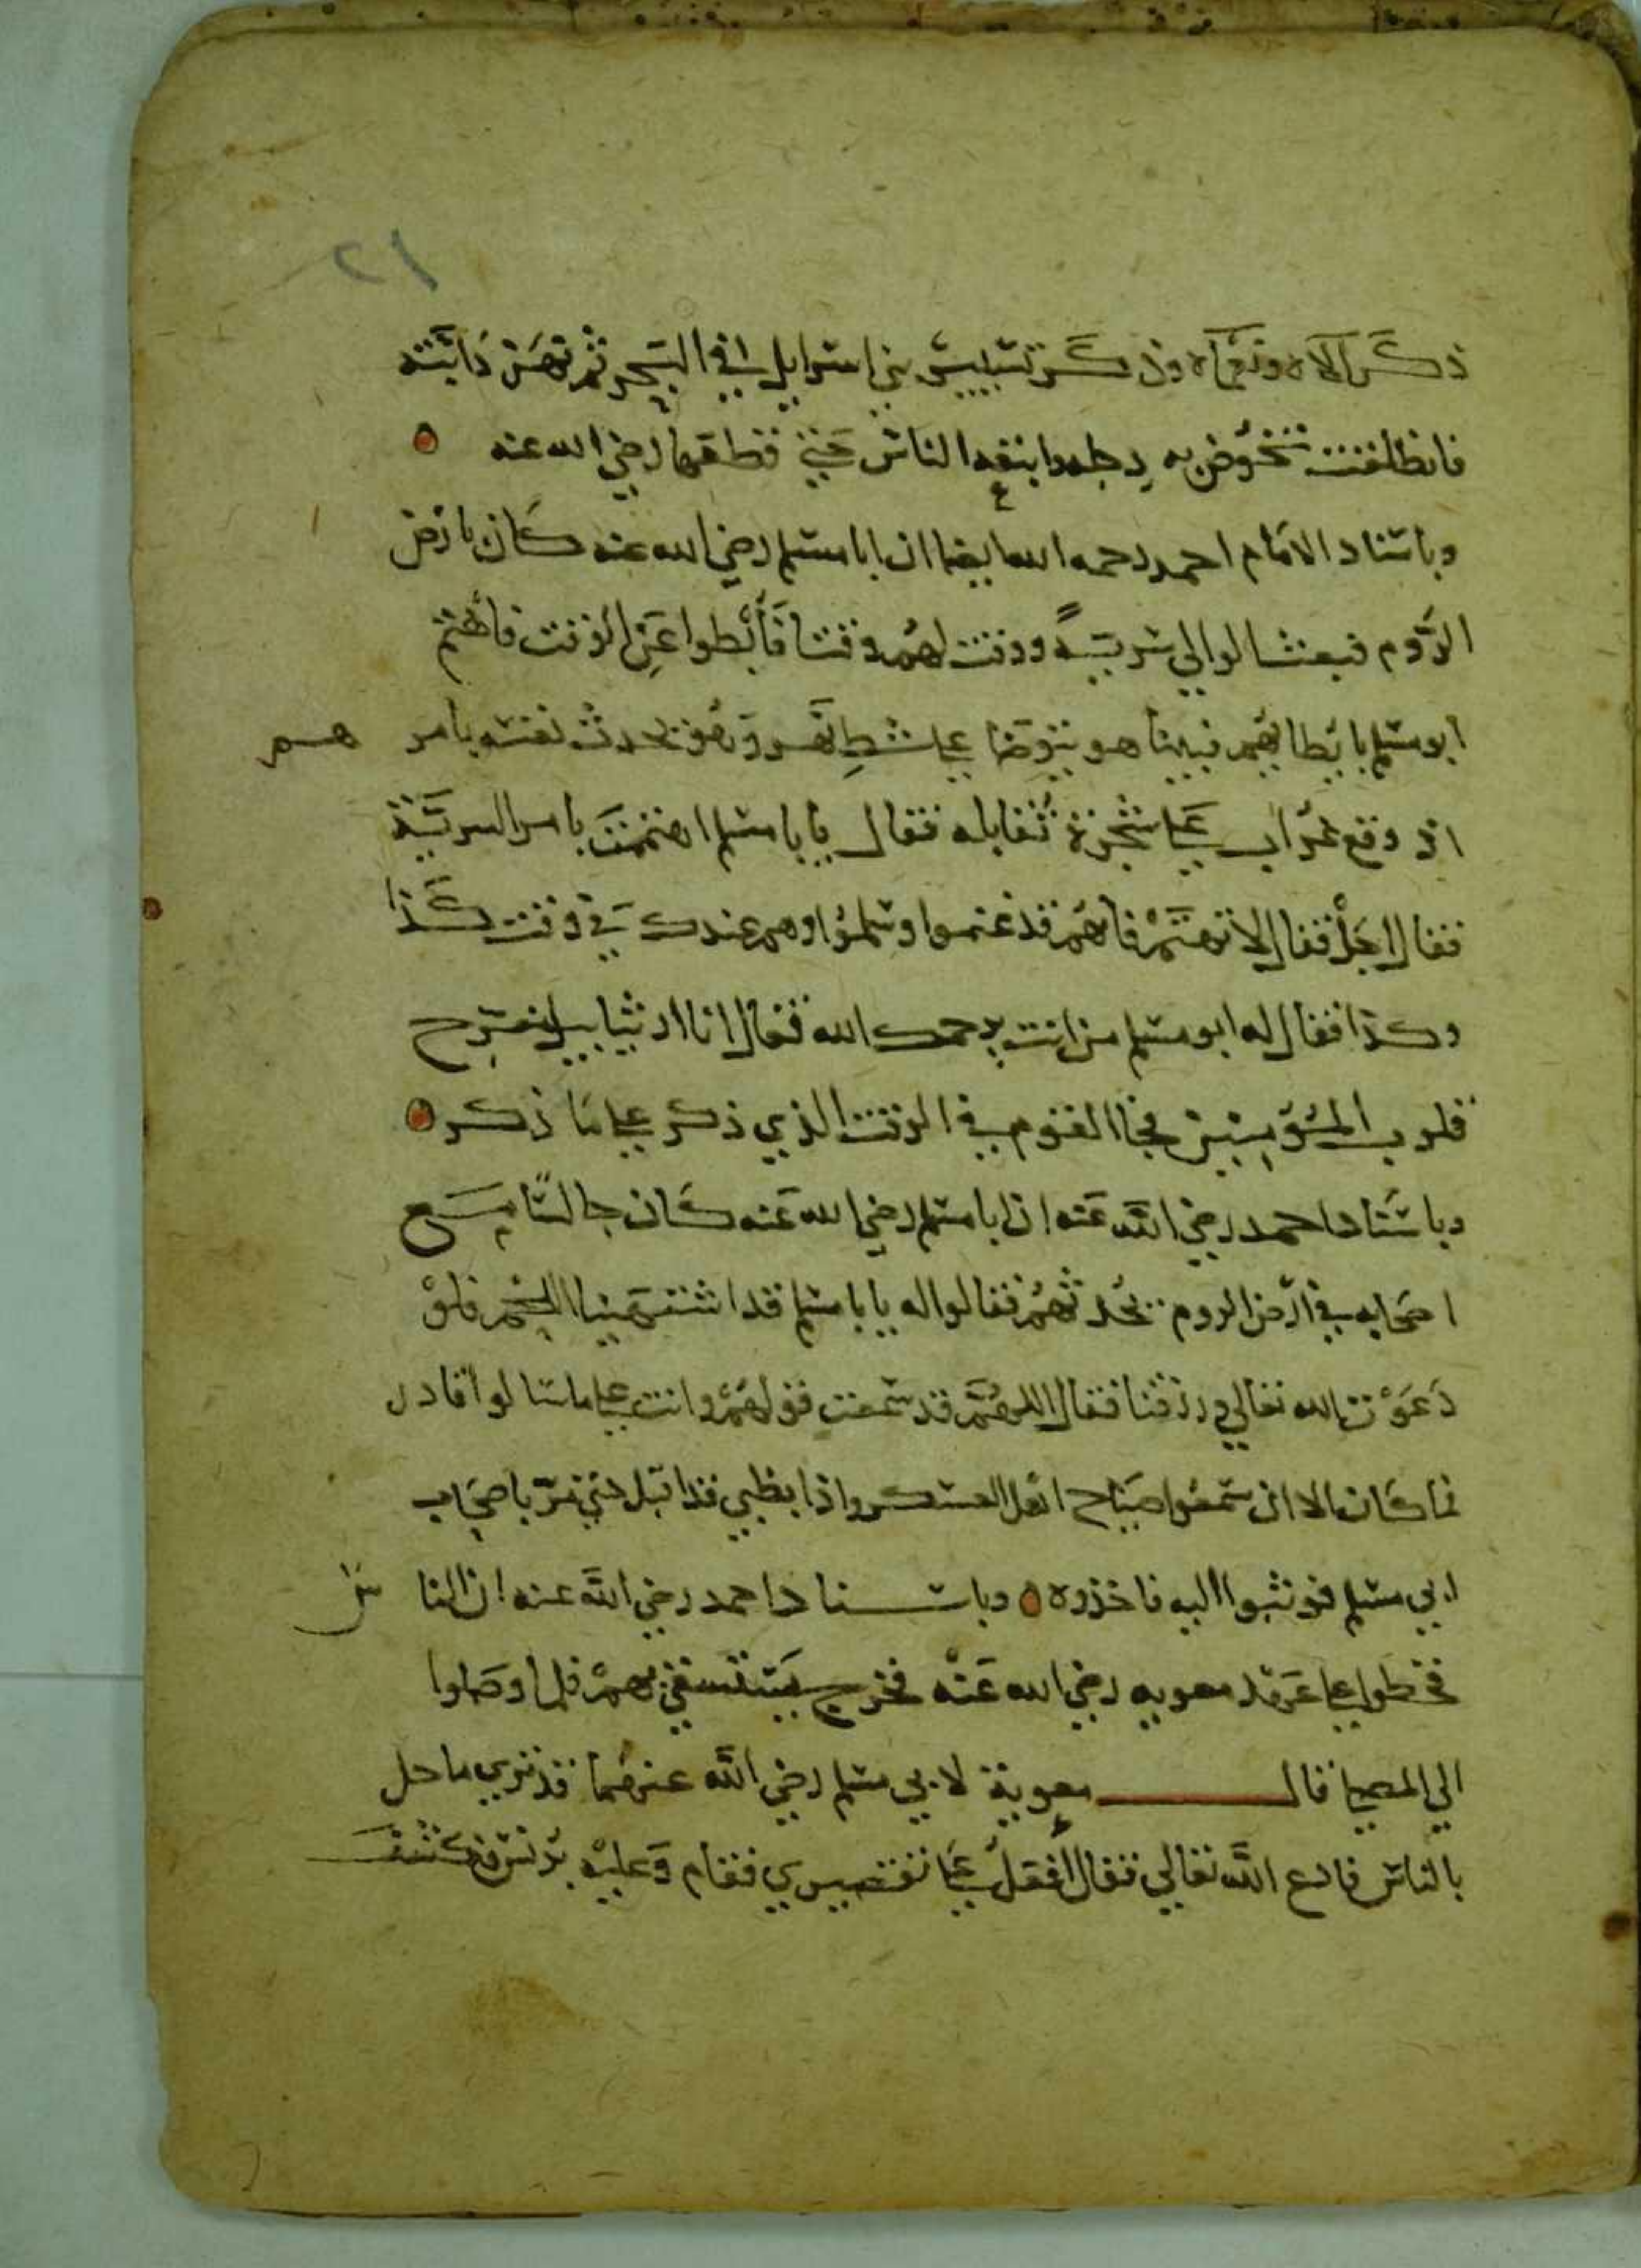 ٢١
ذكر الاه ونعماه وذكر تسيير بني اسرايل في البحر ثم نهر دابته
فانطلقت تخوض به دجله واتبعه الناس حتي قطعها رضي الله عنه
وباسناد الامام احمد رحمه الله ايضا ان ابا مسلم رضي الله عنه كان بارض
الروم فبعث الوالي سرية ووقت لهم وقتا فأبطوا عن الوقت فاهتم
ابو مسلم بابطايهم فبينا هو يتوضا علي شط نهر وهو يحدث نفسه بامر هم
اذ وقع غراب علي شجرة تقابله فقال يا با مسلم اهتممت بامر السرية
فقال اجل فقال لا تهتم فانهم قد غنموا وسلموا وهم عندك في وقت كذا
وكذا فقال له ابو مسلم من انت يرحمك الله فقال انا ارثياييل مفرح
قلوب المؤمنين فجا القوم في الوقت الذي ذكر علي ما ذكر
وباسناد احمد رضي الله عنه ان ابا مسلم رضي الله عنه كان جالسا مع
اصحابه في ارض الروم يحدثهم فقالوا له يا با مسلم قد اشتهينا اللحم فلو
دعوت الله تعالي فرزقنا فقال اللهم قد سمعت قولهم وانت علي ما سالوا قادر
فما كان الا ان سمعوا صياح اهل العسكر واذا بظبي قد اقبل حتي مر باصحاب
ابي مسلم فوثبوا اليه فاخذوه وباسناد احمد رضي الله عنه ان النا س
قحطوا علي عهد معويه رضي الله عنه فخرج يستسقي بهم فلما وصلوا
الي المصلي قال معوية لابي مسلم رضي الله عنهما قد تري ما حل
بالناس فادع الله تعالي فقال افعل علي تقصيري فقام وعليه برنس فكشف